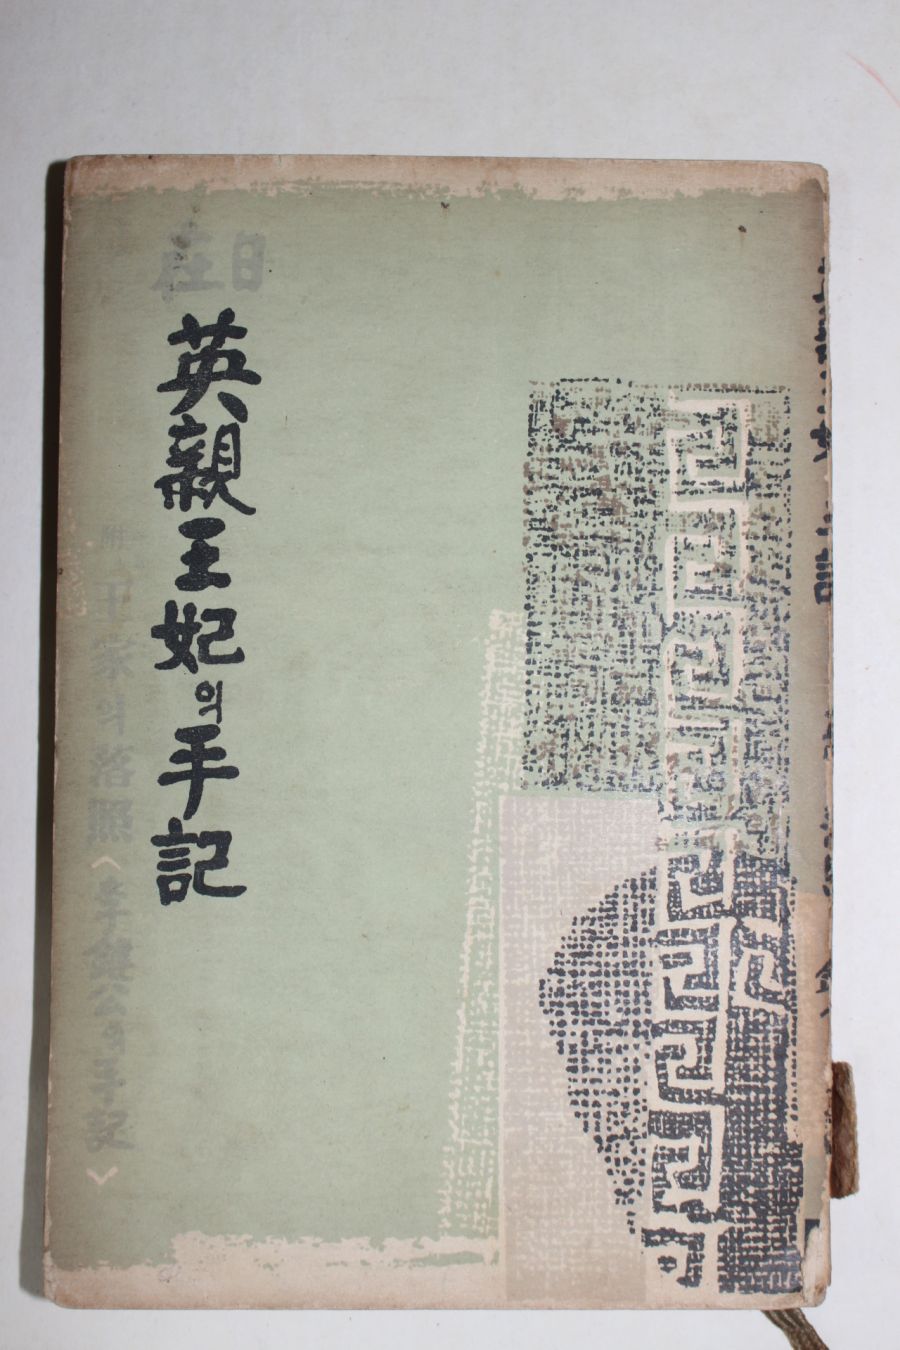 在日
英親王妃의手記
附 王家의落照
<李鍵公의手記>